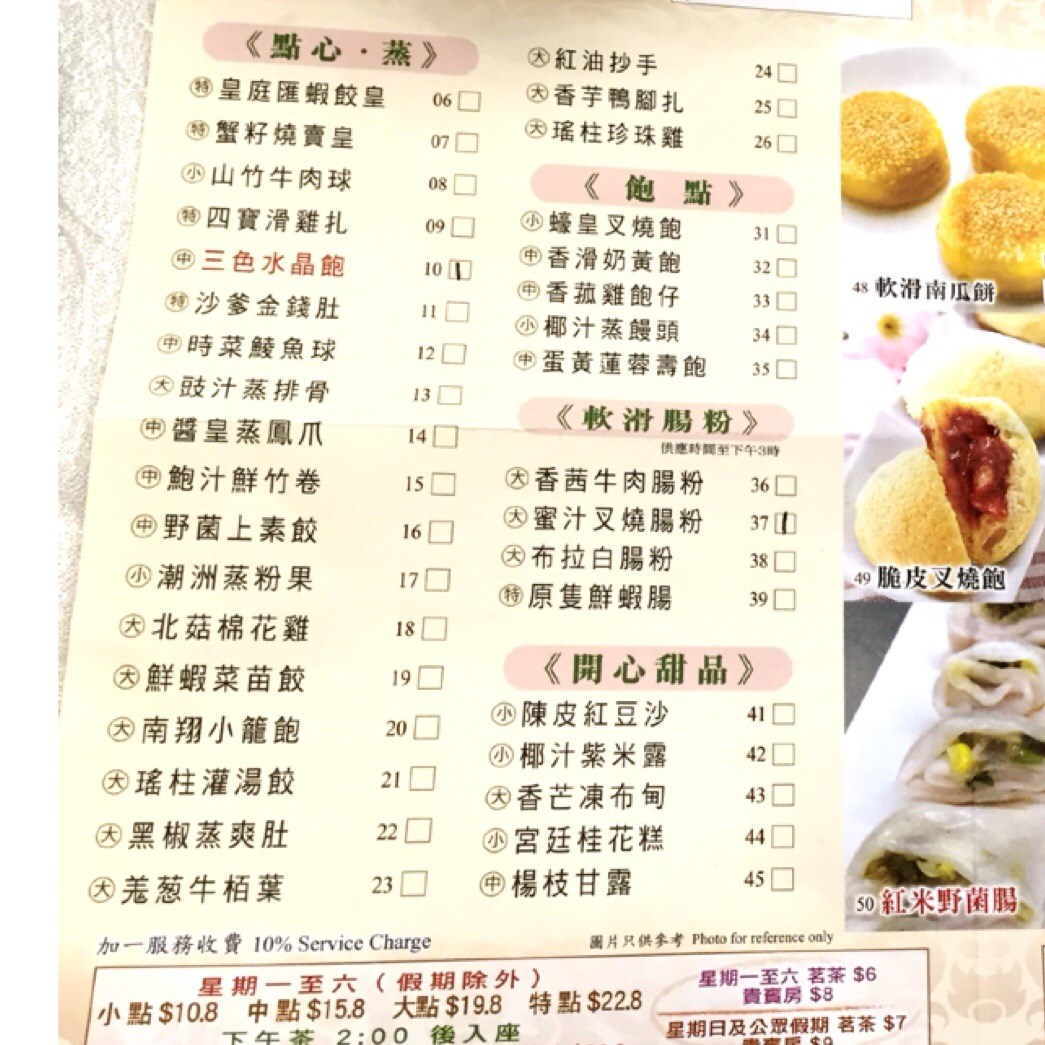 《點心·蒸》
特 皇庭匯蝦餃皇 06
特 蟹籽燒賣皇 07
小 山竹牛肉球 08
特 四寶滑雞扎 09
中 三色水晶飽 10
特 沙爹金錢肚 11
中 時菜鯪魚球 12
大 豉汁蒸排骨 13
中 醬皇蒸鳳爪 14
中 鮑汁鮮竹卷 15
中 野菌上素餃 16
小 潮洲蒸粉果 17
大 北菇棉花雞 18
大 鮮蝦菜苗餃 19
大 南翔小籠飽 20
大 瑤柱灌湯餃 21
大 黑椒蒸爽肚 22
大 羗葱牛栢葉 23
大 紅油抄手 24
大 香芋鴨腳扎 25
大 瑤柱珍珠雞 26
《飽點》
小 蠔皇叉燒飽 31
中 香滑奶黃飽 32
中 香菰雞飽仔 33
小 椰汁蒸饅頭 34
中 蛋黃蓮蓉壽飽 35
《軟滑腸粉》
供應時間至下午3時
大 香茜牛肉腸粉 36
大 蜜汁叉燒腸粉 37
大 布拉白腸粉 38
特 原隻鮮蝦腸 39
《開心甜品》
小 陳皮紅豆沙 41
小 椰汁紫米露 42
大 香芒凍布甸 43
小 宮廷桂花糕 44
中 楊枝甘露 45
48 軟滑南瓜餅
49 脆皮叉燒飽
50 紅米野菌腸
加一服務收費 10% Service Charge
圖片只供參考 Photo for reference only
星期一至六（假期除外）
小點$10.8 中點$15.8 大點$19.8 特點$22.8
下午茶 2:00 後入座
星期一至六 茗茶 $6
貴賓房 $8
星期日及公眾假期 茗茶 $7
貴賓房 $9